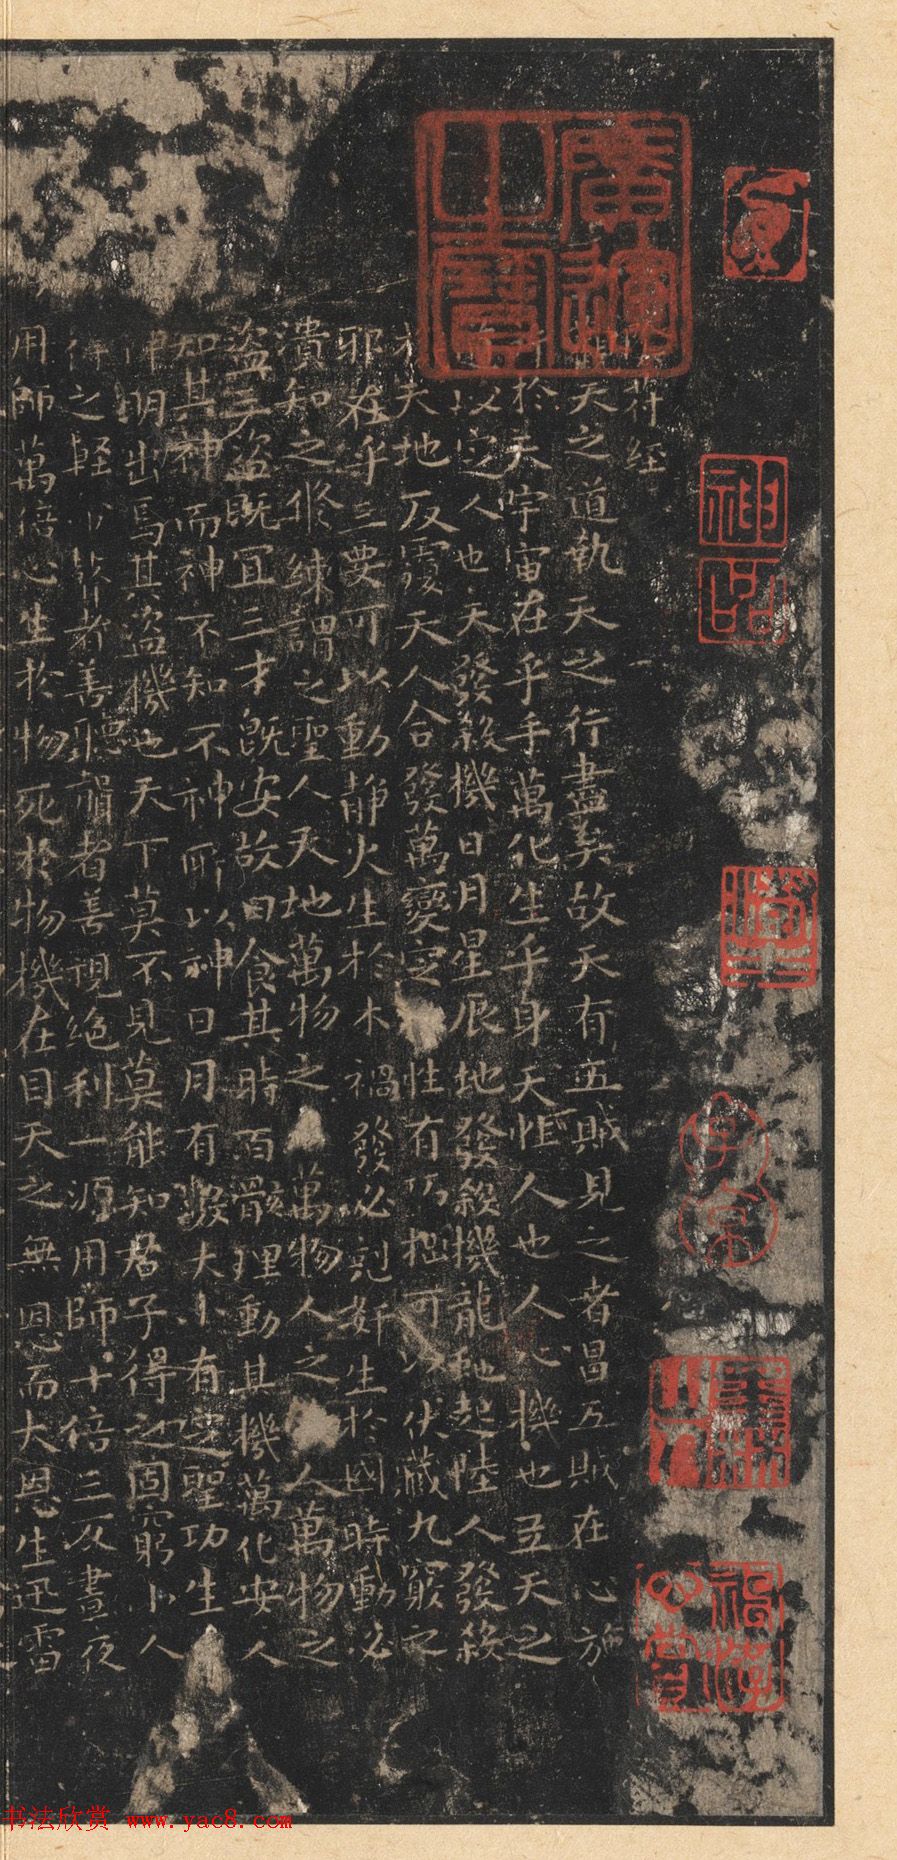 符經
天之道執天之行盡矣故天有五賊見之者昌五賊在心施
於天宇宙在乎手萬化生乎身天性人也人心機也立天之
以定人也天發殺機日月星辰地發殺機龍虵起陸人發殺
天地反覆天人合發萬變定性有巧拙可以伏藏九竅之
邪在乎三要可以動靜火生於木禍發必剋姧生於國時動必
潰知之修練謂之聖人天地萬物之萬物人之人萬物之
盜三盜既冝三才旣安故曰食其時百骸理動其機萬化安人
知其神而神不知不神所以神日月有數大小有定聖功生
明出焉其盜機也天下莫不見莫能知君子得之固窮小人
得之輕善聽視者善視絕利一源用師十倍三反晝夜
用師萬倍心生於物死於物機在目天之無恩而大恩生迅雷
廣運之寶
神品
書法欣賞 www.yac8.com